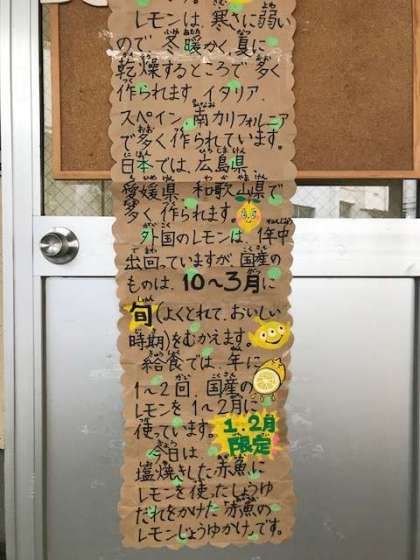 レモンは、寒さに弱い
ので冬暖かく、夏に
乾燥するところで多く
作られます。イタリア、
スペイン、南カリフォルニア
で多く作られています。
日本では、広島県、
愛媛県、和歌山県で
多く作られます。
外国のレモンは、1年中
出回っていますが、国産の
ものは、10〜3月に
旬(よくとれて、おいしい
時期)をむかえます。
給食では、年に
1〜2回、国産の
レモンを1〜2月に
使っています。
1、2月
限定
今日は、
塩焼きした赤魚に
レモンを使ったしょうゆ
だれをかけた「赤魚の
レモンじょうゆかけ」です。